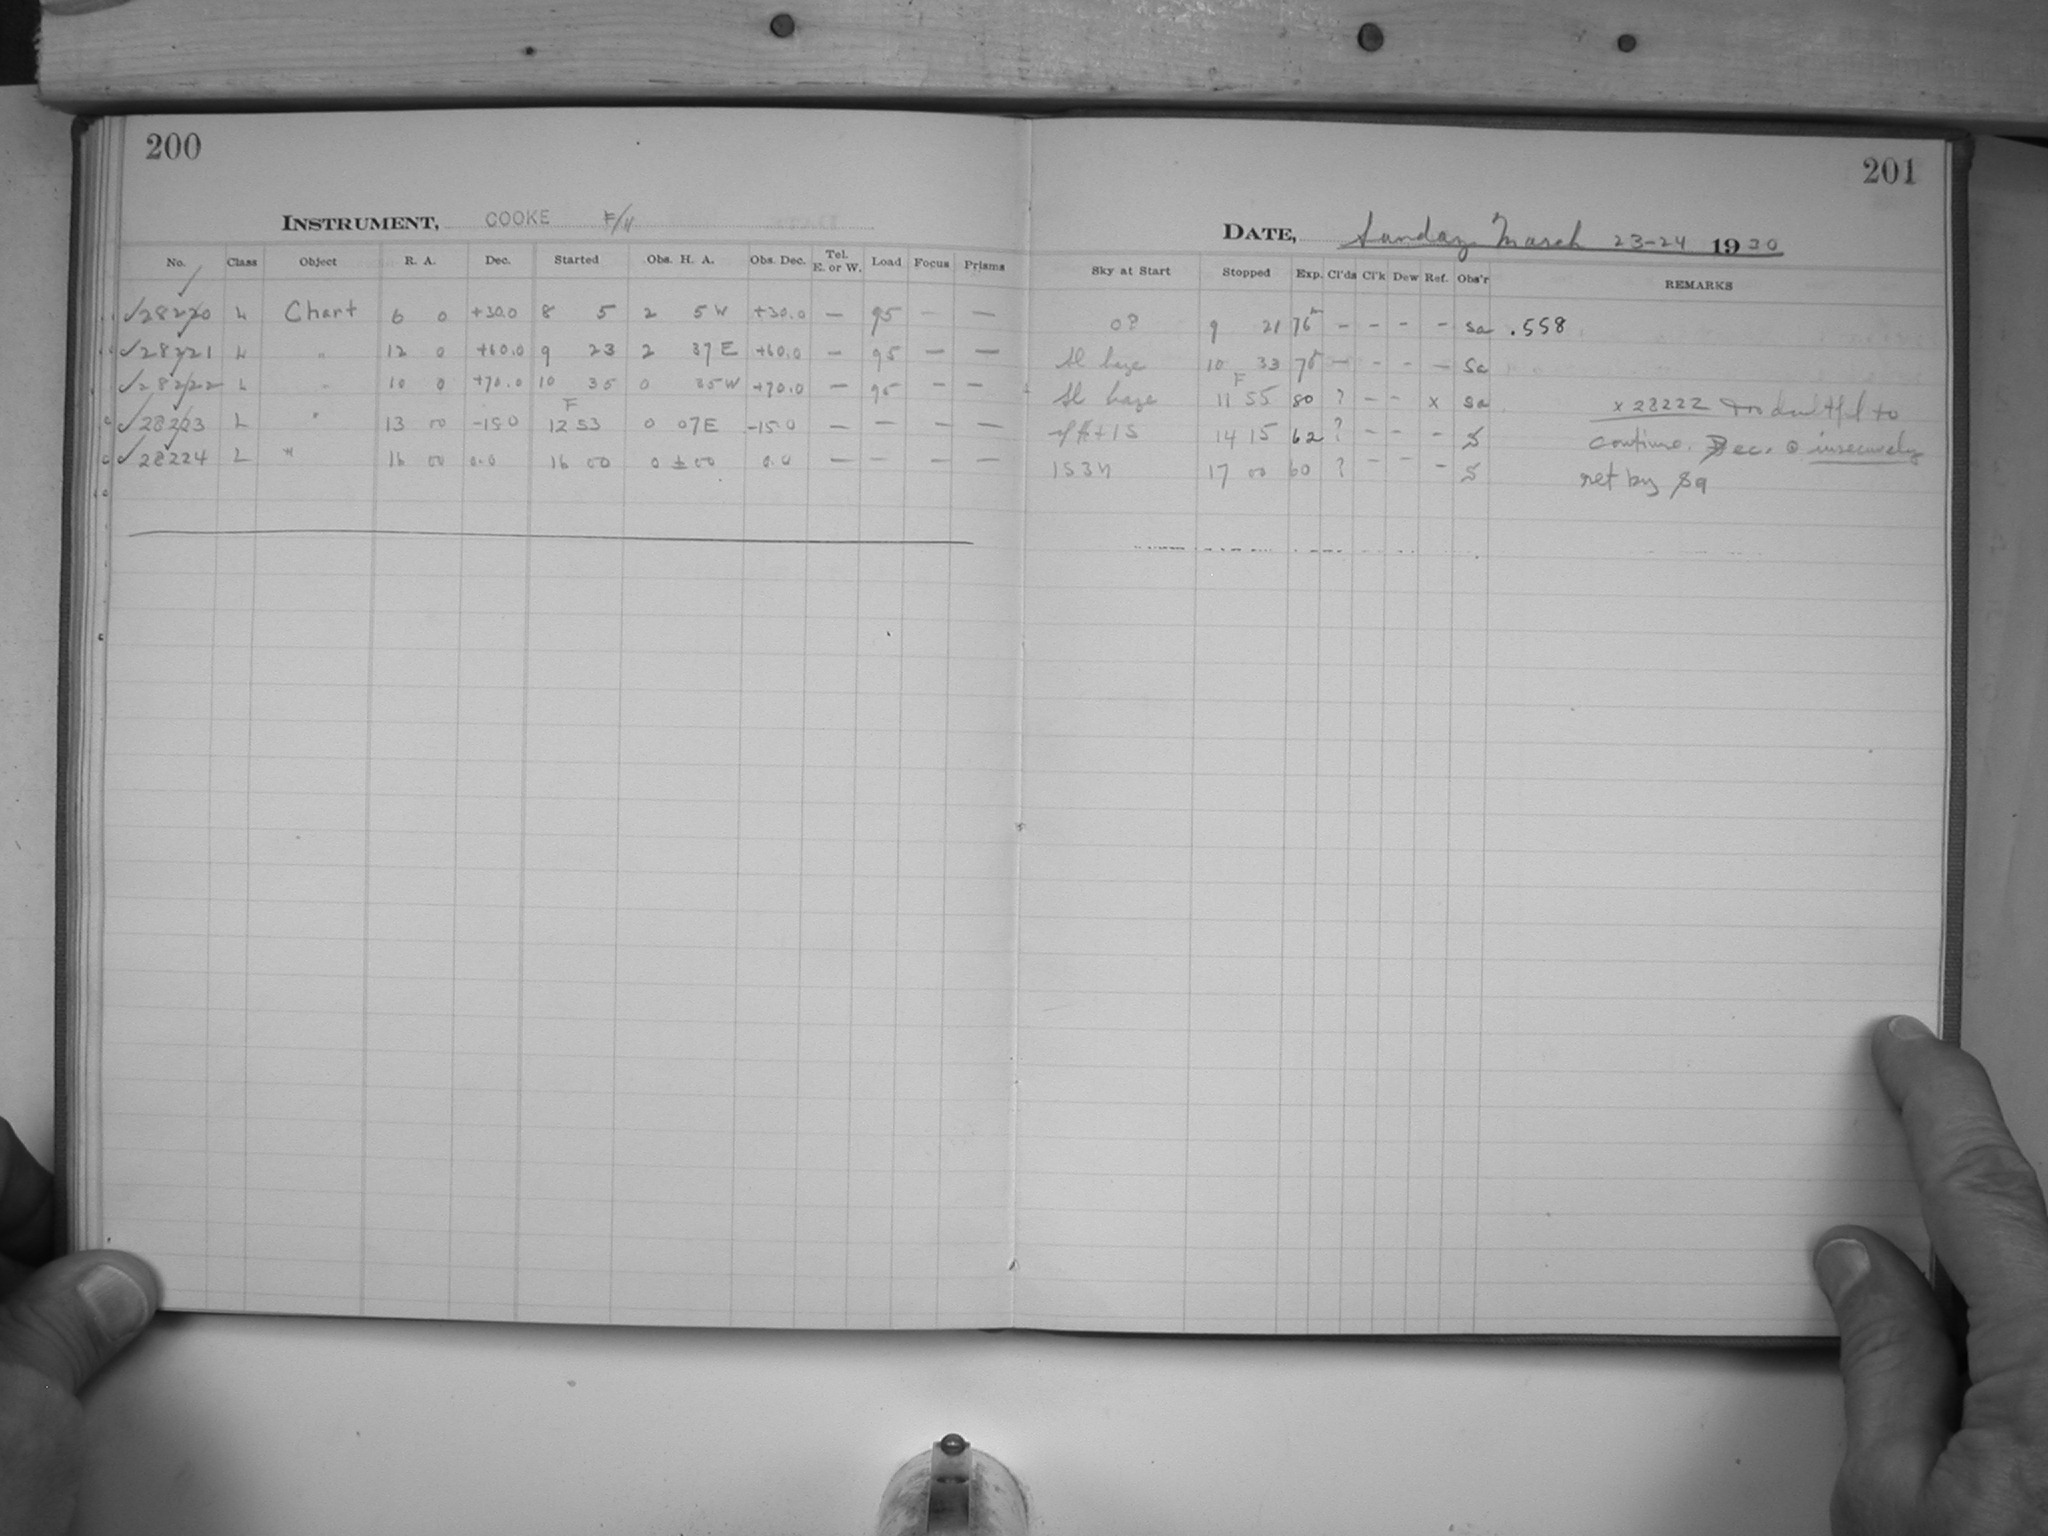 200
201
INSTRUMENT, COOKE
DATE, Sunday March 23-24 1930
No. Class Object R. A. Dec. Started Obs. H. A. Obs. Dec. Tel. E. or W. Load Focus Prisms
Sky at Start Stopped Exp. Cl'ds Cl'k Dew Ref. Obs'r REMARKS
✓28220 L Chart 6 0 +30.0 8 5 2 5 W +30.0 — 95 — —
0? 9 21 76 — — — — Sa .558
✓28221 L " 12 0 +60.0 9 23 2 37 E +60.0 — 95 — —
Sl haze 10 33 70 — — — — Sa
✓28222 L " 10 0 +70.0 10 35 0 35 W +70.0 — 95 — —
Sl haze 11 55 80 ? — — x Sa x 28222 too doubtful to
✓28223 L " 13 00 -15.0 F 12 53 0 07 E -15.0 — — — —
F 14 15 62 ? — — — S continue. Dec. insecurely
✓28224 L " 16 00 0.0 16 00 0 ± 00 0.0 — — — —
17 00 60 ? — — — S set by Sa